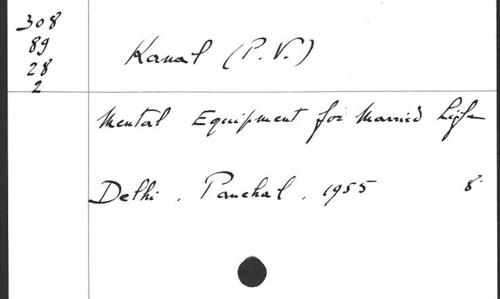 308
89
28
2
Kanal (P. V.)
Mental Equipment for Married Life
Delhi. Panchal. 1955 8°